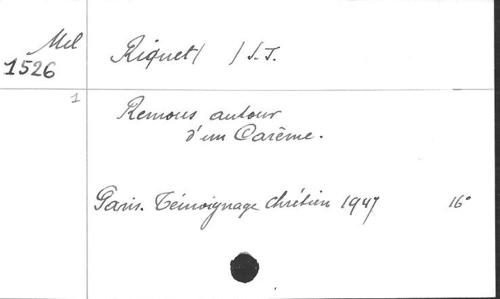 Mel
1526
Riquet / / S.J.
1
Remous autour
d'un Carême.
Paris. Témoignage chrétien 1947 16°